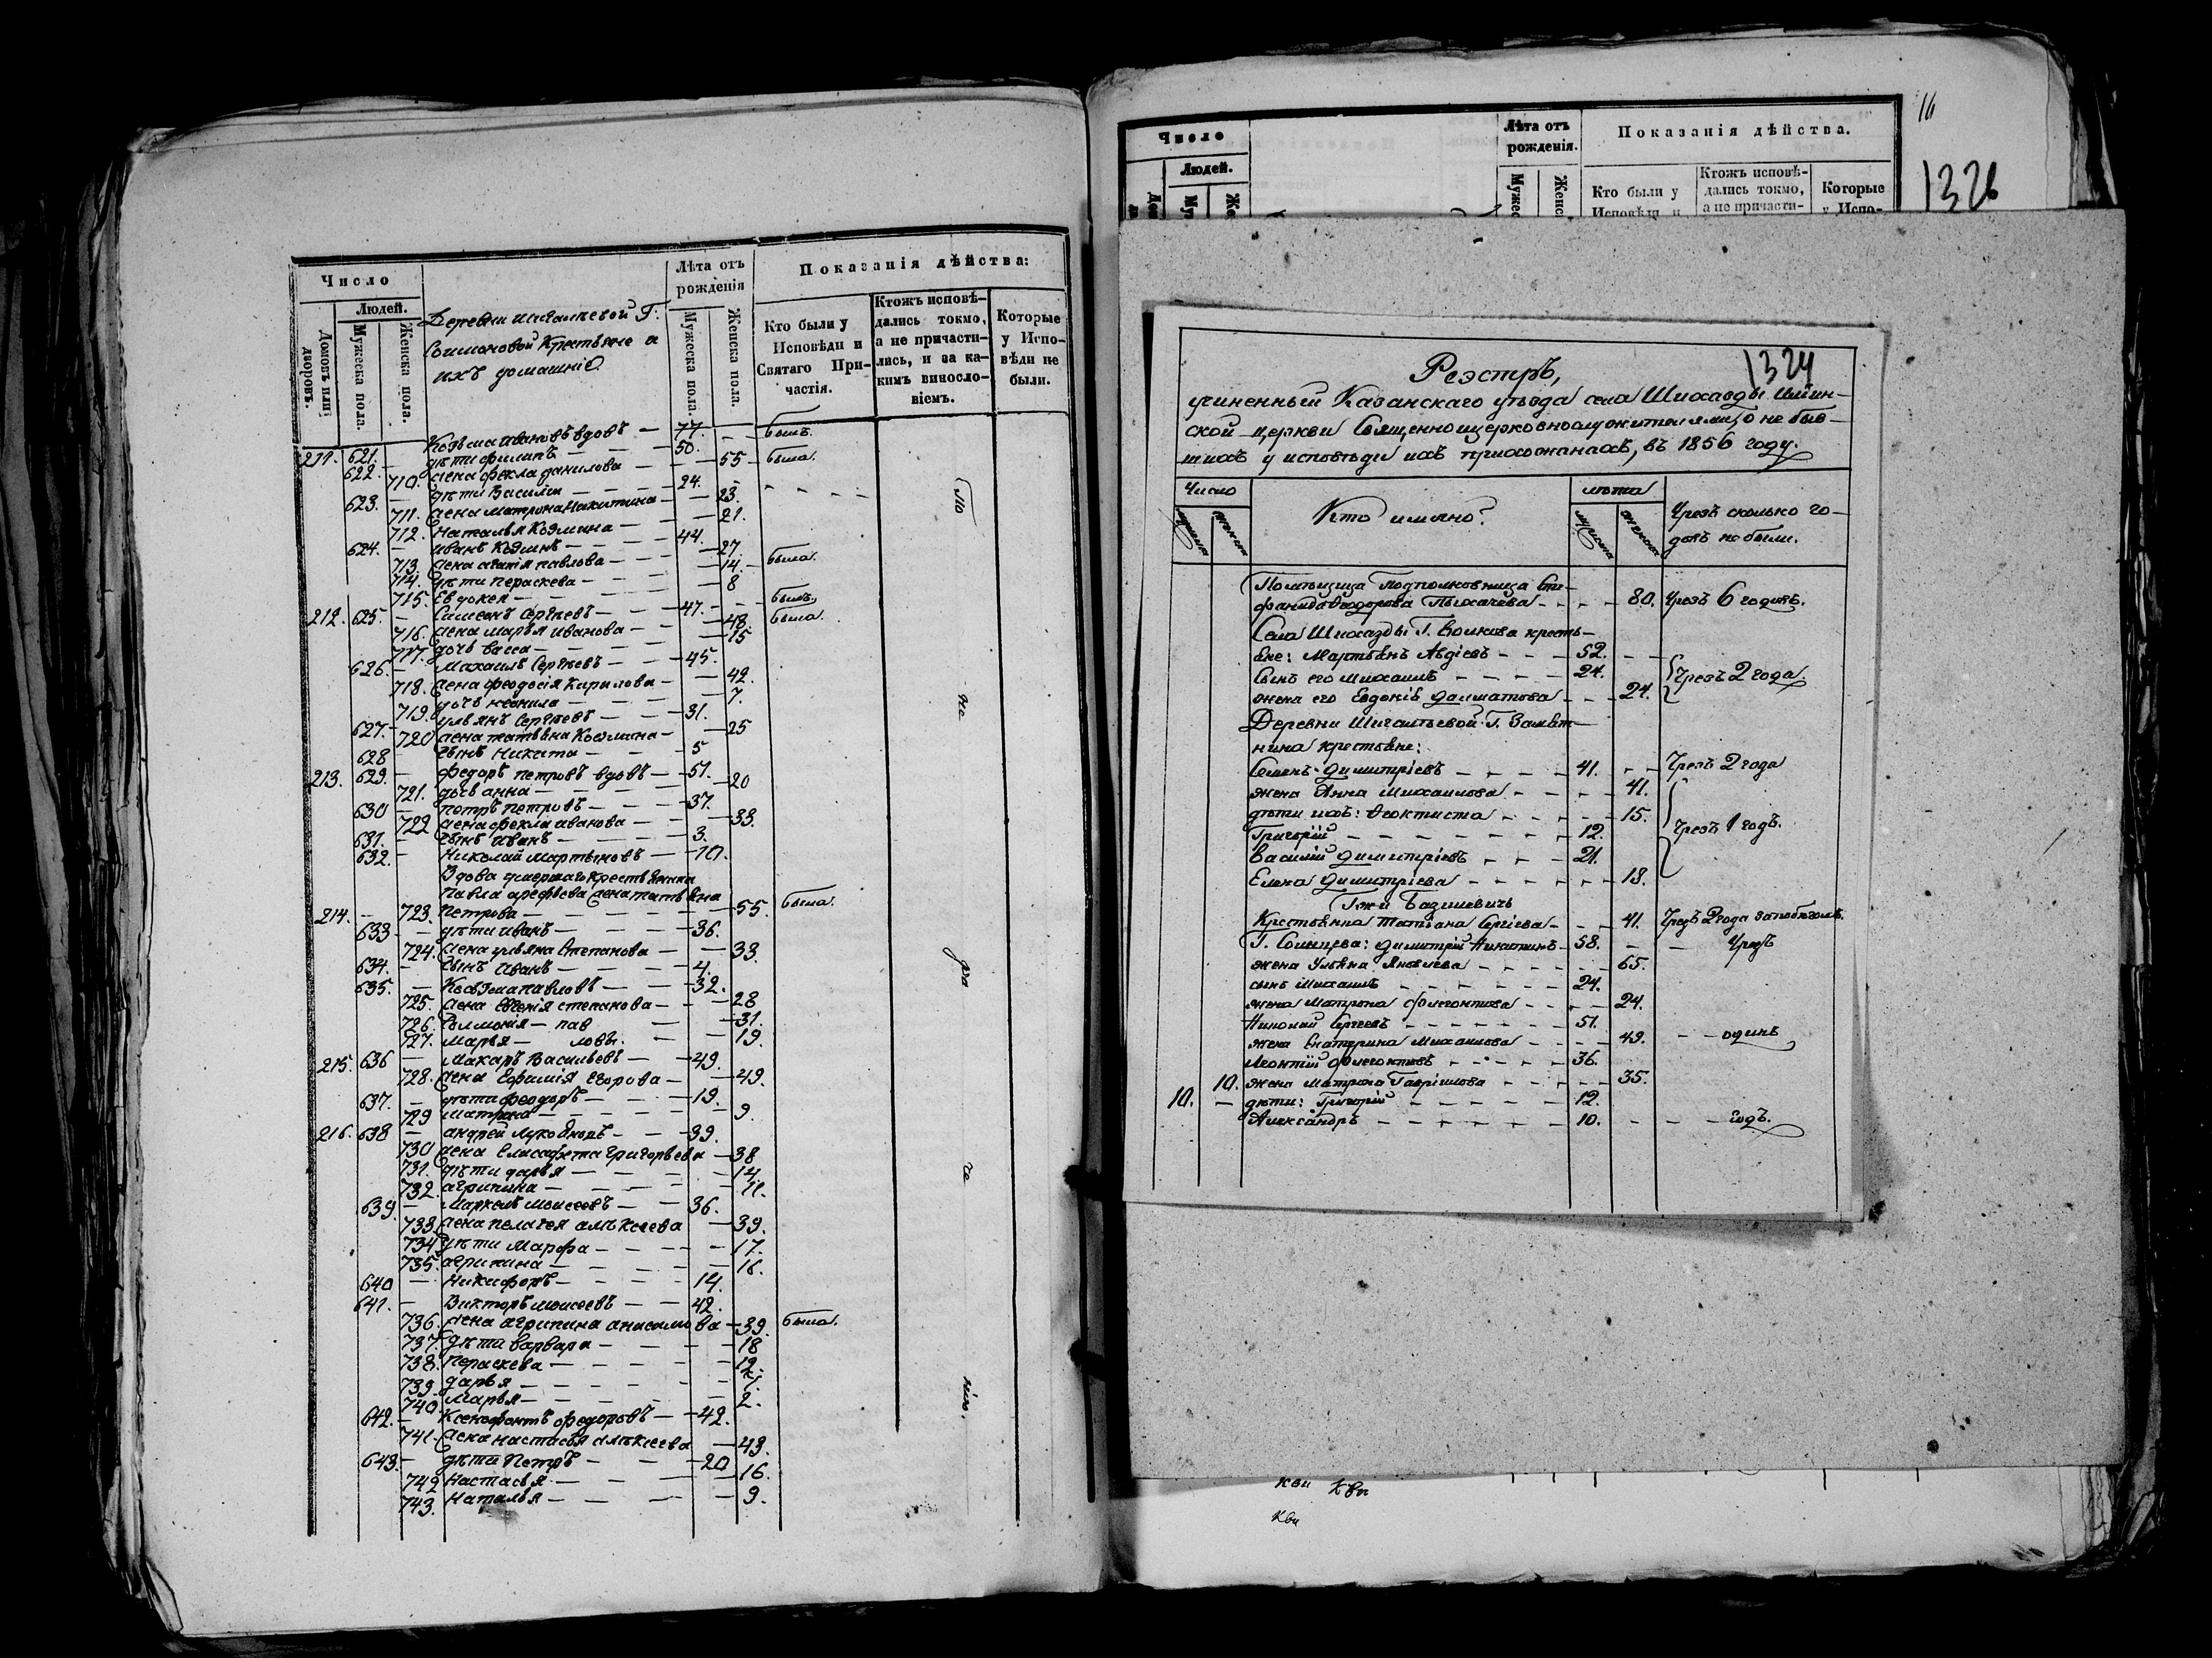 Число
Людей.
Домовъ или дворовъ.
Мужеска пола.
Женска пола.
Деревни Шигалѣевой Г.
Крестьяне и
ихъ домашніе
Лѣта отъ рожденія
Мужеска пола.
Женска пола.
Показанія дѣйства:
Кто были у Исповѣди и Святаго Причастія.
Ктожъ исповѣдались токмо, а не причастились, и за какимъ винословіемъ.
Которые у Исповѣди не были.
211. 621. Козьма Ивановъ вдовъ — 77. былъ.
622. дѣти филипъ — 50.
710. жена фекла данилова — 55 — была.
623. дѣти Василий — 24.
711. жена матрона Никитина — 23.
712. Наталья Козмина — 21.
624. иванъ Козминъ — 44.
713. жена агапія павлова — 27.
714. дѣти пераскева — 14. была.
715. Евдокея — 8
212. 625. Симеонъ Сергѣевъ — 47. былъ.
716. жена марья иванова — 48. была.
717. дочь васса — 15
626. Михаилъ Сергѣевъ — 45.
718. жена феодосія Кирилова — 42.
719. дочь — 7.
627. ульянъ Сергѣевъ — 31.
720 жена татьяна Козмина — 25
628 сынъ Никита — 5
213. 629. федоръ петровъ вдовъ — 51.
721. дочь анна — 20
630 петръ петровъ — 37.
722 жена фекла иванова — 33.
631. сынъ иванъ — 3.
632. Николай мартыновъ — 10.
Вдова умершаго крестьянина
павла арефьева жена татьяна
214. 723. петрова — 55. была.
633 дѣти иванъ — 36.
724. жена ульяна Степанова — 33.
634. сынъ иванъ — 4.
635. Козьма павловъ — 32.
725. жена Евгенія степанова — 28
726. Соломонія — пав — 31.
727. марья — ловы. — 19.
215. 636 Макаръ Васильевъ — 49.
728. жена Ефимія Егорова — 49.
637. дѣти феодоръ — 19.
729 матрона — 9.
216. 638 андрей — 39.
730 жена Елисавета григорьева — 38
731. дѣти дарья — 14
732. агрипина — 11.
639. Маркелъ моисеевъ — 36.
733. жена пелагея алѣксеева — 39.
734 дѣти Марфа — 17.
735. агрипина — 16.
640 Никифоръ — 14.
641. Викторъ моисеевъ — 42.
736. жена агрипина — 39. была.
737. дѣти варвара — 18
738. пераскева — 12.
739. дарья — 7.
740. марья — 2.
642. Ксенофонтъ федоровъ — 42.
741. жена настасья алѣксеева — 43.
643. дѣти петръ — 20
742 Настасья — 16.
743. Наталья — 9.
По
не
ра
че
нію.
16
1326
Число
Людей.
Лѣта отъ рожденія.
Показанія дѣйства.
Кто были у
Ктожъ исповѣ-
дались токмо,
а не причасти-
Которые
у Испо-
1324
Реэстръ,
учиненный Казанскаго уѣзда села Шихазды Ильин-
ской церкви Священноцерковнослужителями, о не быв-
шихъ у исповѣди ихъ прихожанахъ, въ 1856 году.
Число
Кто имяно?
лѣта
Чрезъ сколько го-
довъ не были.
Помѣщица Подполковница Сте-
фанида Феодорова Лихачева — 80. Чрезъ 6 годовъ.
Села Шихазды Г. Волкова кресть-
яне: Мартьянъ Авдіевъ — 52.
Сынъ его Михаилъ — 24. Чрезъ 2 года.
жена его Евдокія Далматова — 24.
Деревни Шигалѣевой Г. Замят-
нина крестьяне:
Семенъ Димитріевъ — 41. Чрезъ 2 года
жена Анна Михаилова — 41.
дѣти ихъ: Феоктиста — 15.
Григорій — 12. Чрезъ 1 годъ.
Василій Димитріевъ — 21.
Елена Димитріева — 18.
Гжи Базилевичь
Крестьянка Татіана Сергіева — 41. Чрезъ 2 года
Г. Димитрій Никитинъ — 58. — Чрезъ
жена Ульяна Яковлева — 65.
сынъ Михаилъ — 24.
жена Матрона Флегонтова — 24.
Николай Сергеевъ — 51.
жена Екатерина Михаилова — 49. — одинъ
Леонтій Флегонтовъ — 36.
10. жена Матрона Гавріилова — 35.
10. — дѣти: Григорій — 12.
Александръ — 10. — годъ.
Кви Кви
Кви